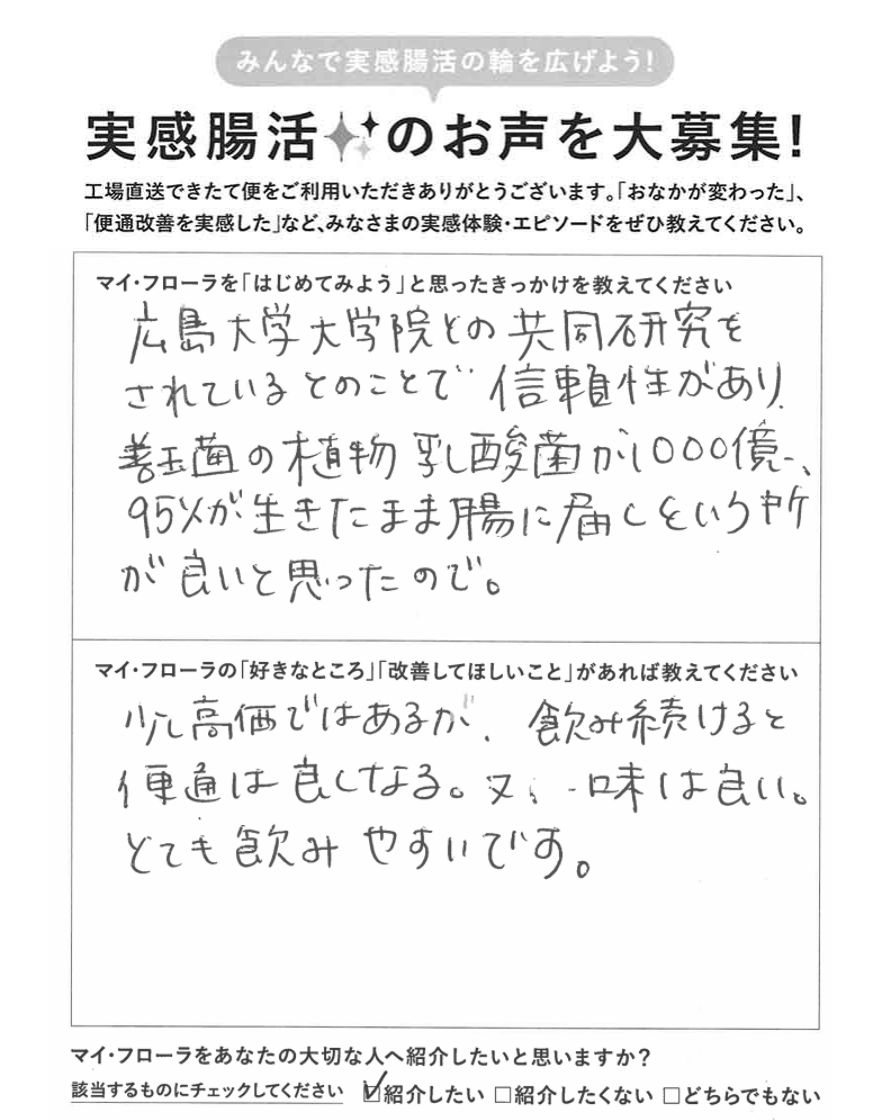 みんなで実感腸活の輪を広げよう!
実感腸活のお声を大募集!
工場直送できたて便をご利用いただきありがとうございます。「おなかが変わった」、
「便通改善を実感した」など、みなさまの実感体験・エピソードをぜひ教えてください。
マイ・フローラを「はじめてみよう」と思ったきっかけを教えてください
広島大学大学院との共同研究を
されているとのことで信頼性があり、
善玉菌の植物乳酸菌が1000億、
95%が生きたまま腸に届くという所
が良いと思ったので。
マイ・フローラの「好きなところ」「改善してほしいこと」があれば教えてください
少し高価ではあるが、飲み続けると
便通は良くなる。又、味は良い。
とても飲みやすいです。
マイ・フローラをあなたの大切な人へ紹介したいと思いますか?
該当するものにチェックしてください ☑紹介したい □紹介したくない □どちらでもない